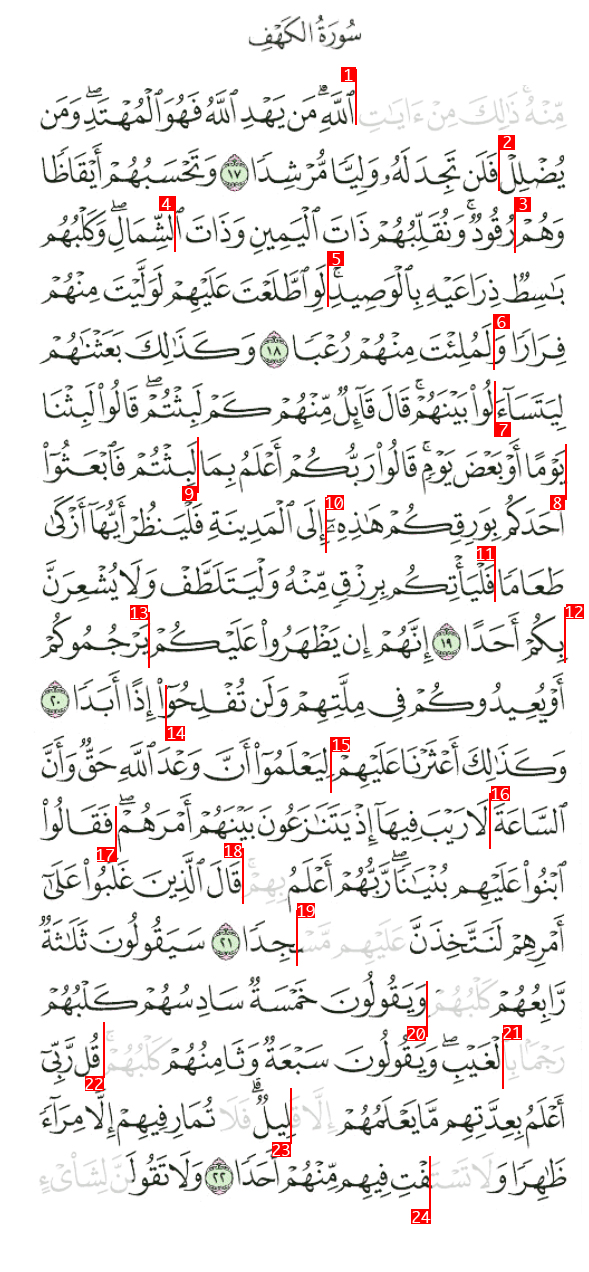 سُورَةُ الكَهْفِ
مِّنْهُ ۚ ذَٰلِكَ مِنْ ءَايَـٰتِ 1 ٱللَّهِ ۗ مَن يَهْدِ ٱللَّهُ فَهُوَ ٱلْمُهْتَدِ ۖ وَمَن
يُضْلِلْ 2 فَلَن تَجِدَ لَهُۥ وَلِيًّا مُّرْشِدًا ١٧ وَتَحْسَبُهُمْ أَيْقَاظًا
وَهُمْ 3 رُقُودٌ ۚ وَنُقَلِّبُهُمْ ذَاتَ ٱلْيَمِينِ وَذَاتَ 4 ٱلشِّمَالِ ۖ وَكَلْبُهُم
بَـٰسِطٌ ذِرَاعَيْهِ بِٱلْوَصِيدِ ۚ 5 لَوِ ٱطَّلَعْتَ عَلَيْهِمْ لَوَلَّيْتَ مِنْهُمْ
فِرَارًا وَ 6 لَمُلِئْتَ مِنْهُمْ رُعْبًا ١٨ وَكَذَٰلِكَ بَعَثْنَـٰهُمْ
لِيَتَسَآءَ 7 لُوا۟ بَيْنَهُمْ ۚ قَالَ قَآئِلٌ مِّنْهُمْ كَمْ لَبِثْتُمْ ۖ قَالُوا۟ لَبِثْنَا
8 يَوْمًا أَوْ بَعْضَ يَوْمٍ ۚ قَالُوا۟ رَبُّكُمْ أَعْلَمُ بِمَا 9 لَبِثْتُمْ فَٱبْعَثُوٓا۟
أَحَدَكُم بِوَرِقِكُمْ هَـٰذِهِۦٓ 10 إِلَى ٱلْمَدِينَةِ فَلْيَنظُرْ أَيُّهَآ أَزْكَىٰ
طَعَامًا 11 فَلْيَأْتِكُم بِرِزْقٍ مِّنْهُ وَلْيَتَلَطَّفْ وَلَا يُشْعِرَنَّ
12 بِكُمْ أَحَدًا ١٩ إِنَّهُمْ إِن يَظْهَرُوا۟ عَلَيْكُمْ 13 يَرْجُمُوكُمْ
أَوْ يُعِيدُوكُمْ فِى مِلَّتِهِمْ وَلَن تُفْلِحُوٓ 14 ا۟ إِذًا أَبَدًا ٢٠
وَكَذَٰلِكَ أَعْثَرْنَا عَلَيْهِمْ 15 لِيَعْلَمُوٓا۟ أَنَّ وَعْدَ ٱللَّهِ حَقٌّ وَأَنَّ
ٱلسَّاعَةَ 16 لَا رَيْبَ فِيهَآ إِذْ يَتَنَـٰزَعُونَ بَيْنَهُمْ أَمْرَهُمْ ۖ 17 فَقَالُوا۟
ٱبْنُوا۟ عَلَيْهِم بُنْيَـٰنًا ۖ رَّبُّهُمْ أَعْلَمُ بِهِمْ ۚ 18 قَالَ ٱلَّذِينَ غَلَبُوا۟ عَلَىٰٓ
أَمْرِهِمْ لَنَتَّخِذَنَّ عَلَيْهِم مَّسْ 19 جِدًا ٢١ سَيَقُولُونَ ثَلَـٰثَةٌ
رَّابِعُهُمْ كَلْبُهُمْ 20 وَيَقُولُونَ خَمْسَةٌ سَادِسُهُمْ كَلْبُهُمْ
رَجْمًۢا بِٱ 21 لْغَيْبِ ۖ وَيَقُولُونَ سَبْعَةٌ وَثَامِنُهُمْ كَلْبُهُمْ ۚ 22 قُل رَّبِّىٓ
أَعْلَمُ بِعِدَّتِهِم مَّا يَعْلَمُهُمْ إِلَّا قَ 23 لِيلٌ ۗ فَلَا تُمَارِ فِيهِمْ إِلَّا مِرَآءً
ظَـٰهِرًا وَلَا تَسْتَ 24 فْتِ فِيهِم مِّنْهُمْ أَحَدًا ٢٢ وَلَا تَقُولَنَّ لِشَا۟ىْءٍ